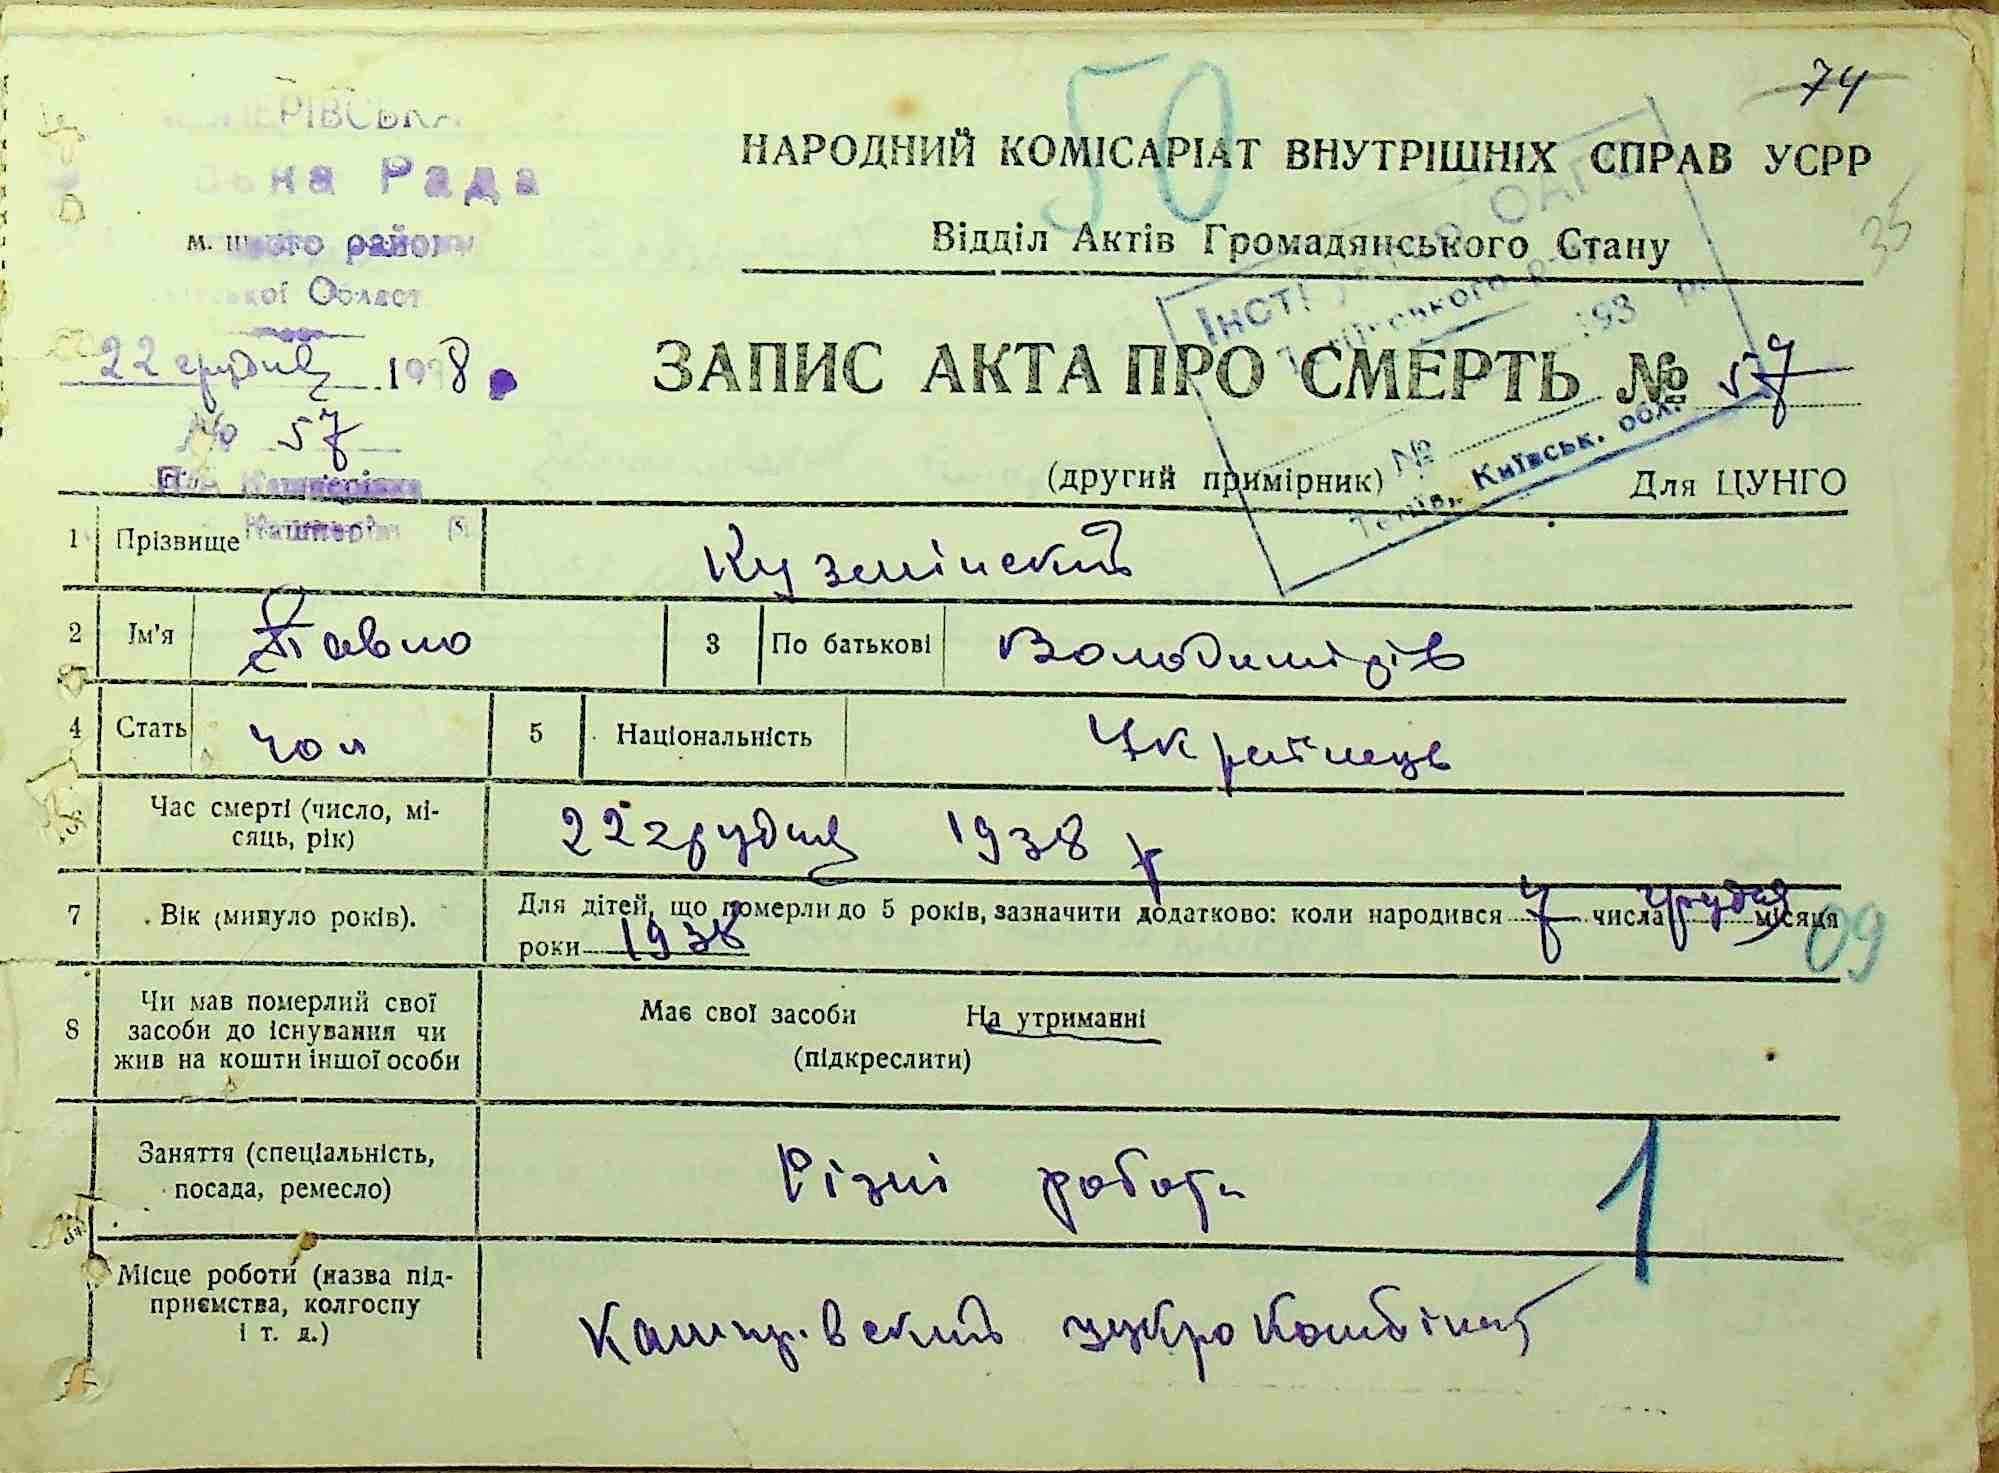 74
50
НАРОДНИЙ КОМІСАРІАТ ВНУТРІШНІХ СПРАВ УСРР
Рада
35
Відділ Актів Громадянського Стану
району
Област
193 р.
22 грудня 1938
ЗАПИС АКТА ПРО СМЕРТЬ № 57
№ 57
(другий примірник)
Для ЦУНГО
№
Київськ. обл.
1 Прізвище Кузмінский
2 Ім'я Павло 3 По батькові Володимірів
4 Стать чол 5 Національність Українець
Час смерті (число, мі-
сяць, рік) 22 грудня 1938 р
7 Вік (минуло років). Для дітей, що померли до 5 років, зазначити додатково: коли народився 7 числа грудня місяця
роки 1938
09
8 Чи мав померлий свої
засоби до існування чи
жив на кошти іншої особи
Має свої засоби На утриманні
(підкреслити)
Заняття (спеціальність,
посада, ремесло) Різні роботи
1
Місце роботи (назва під-
приємства, колгоспу
і т. д.)
цукрокомбінат